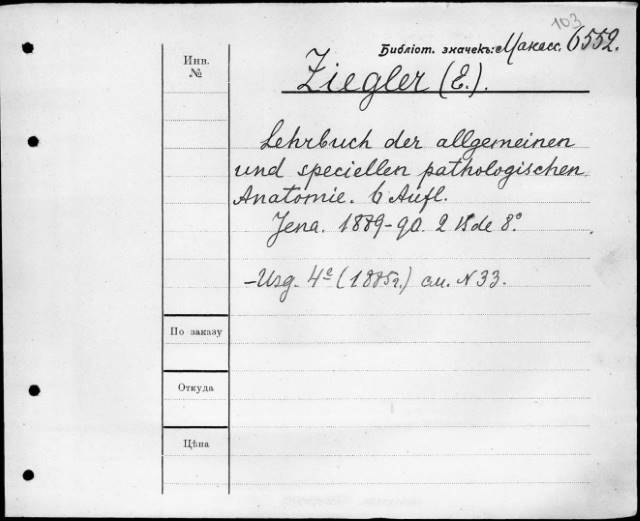 103
Библіот. значекъ: Макасс. 6552.
Инв. №
Ziegler (E.).
Lehrbuch der allgemeinen
und speciellen pathologischen
Anatomie. 6 Aufl.
Jena. 1889-90. 2 Bde 8º
- Изд. 4е (1885г.) см. N 33.
По заказу
Откуда
Цѣна